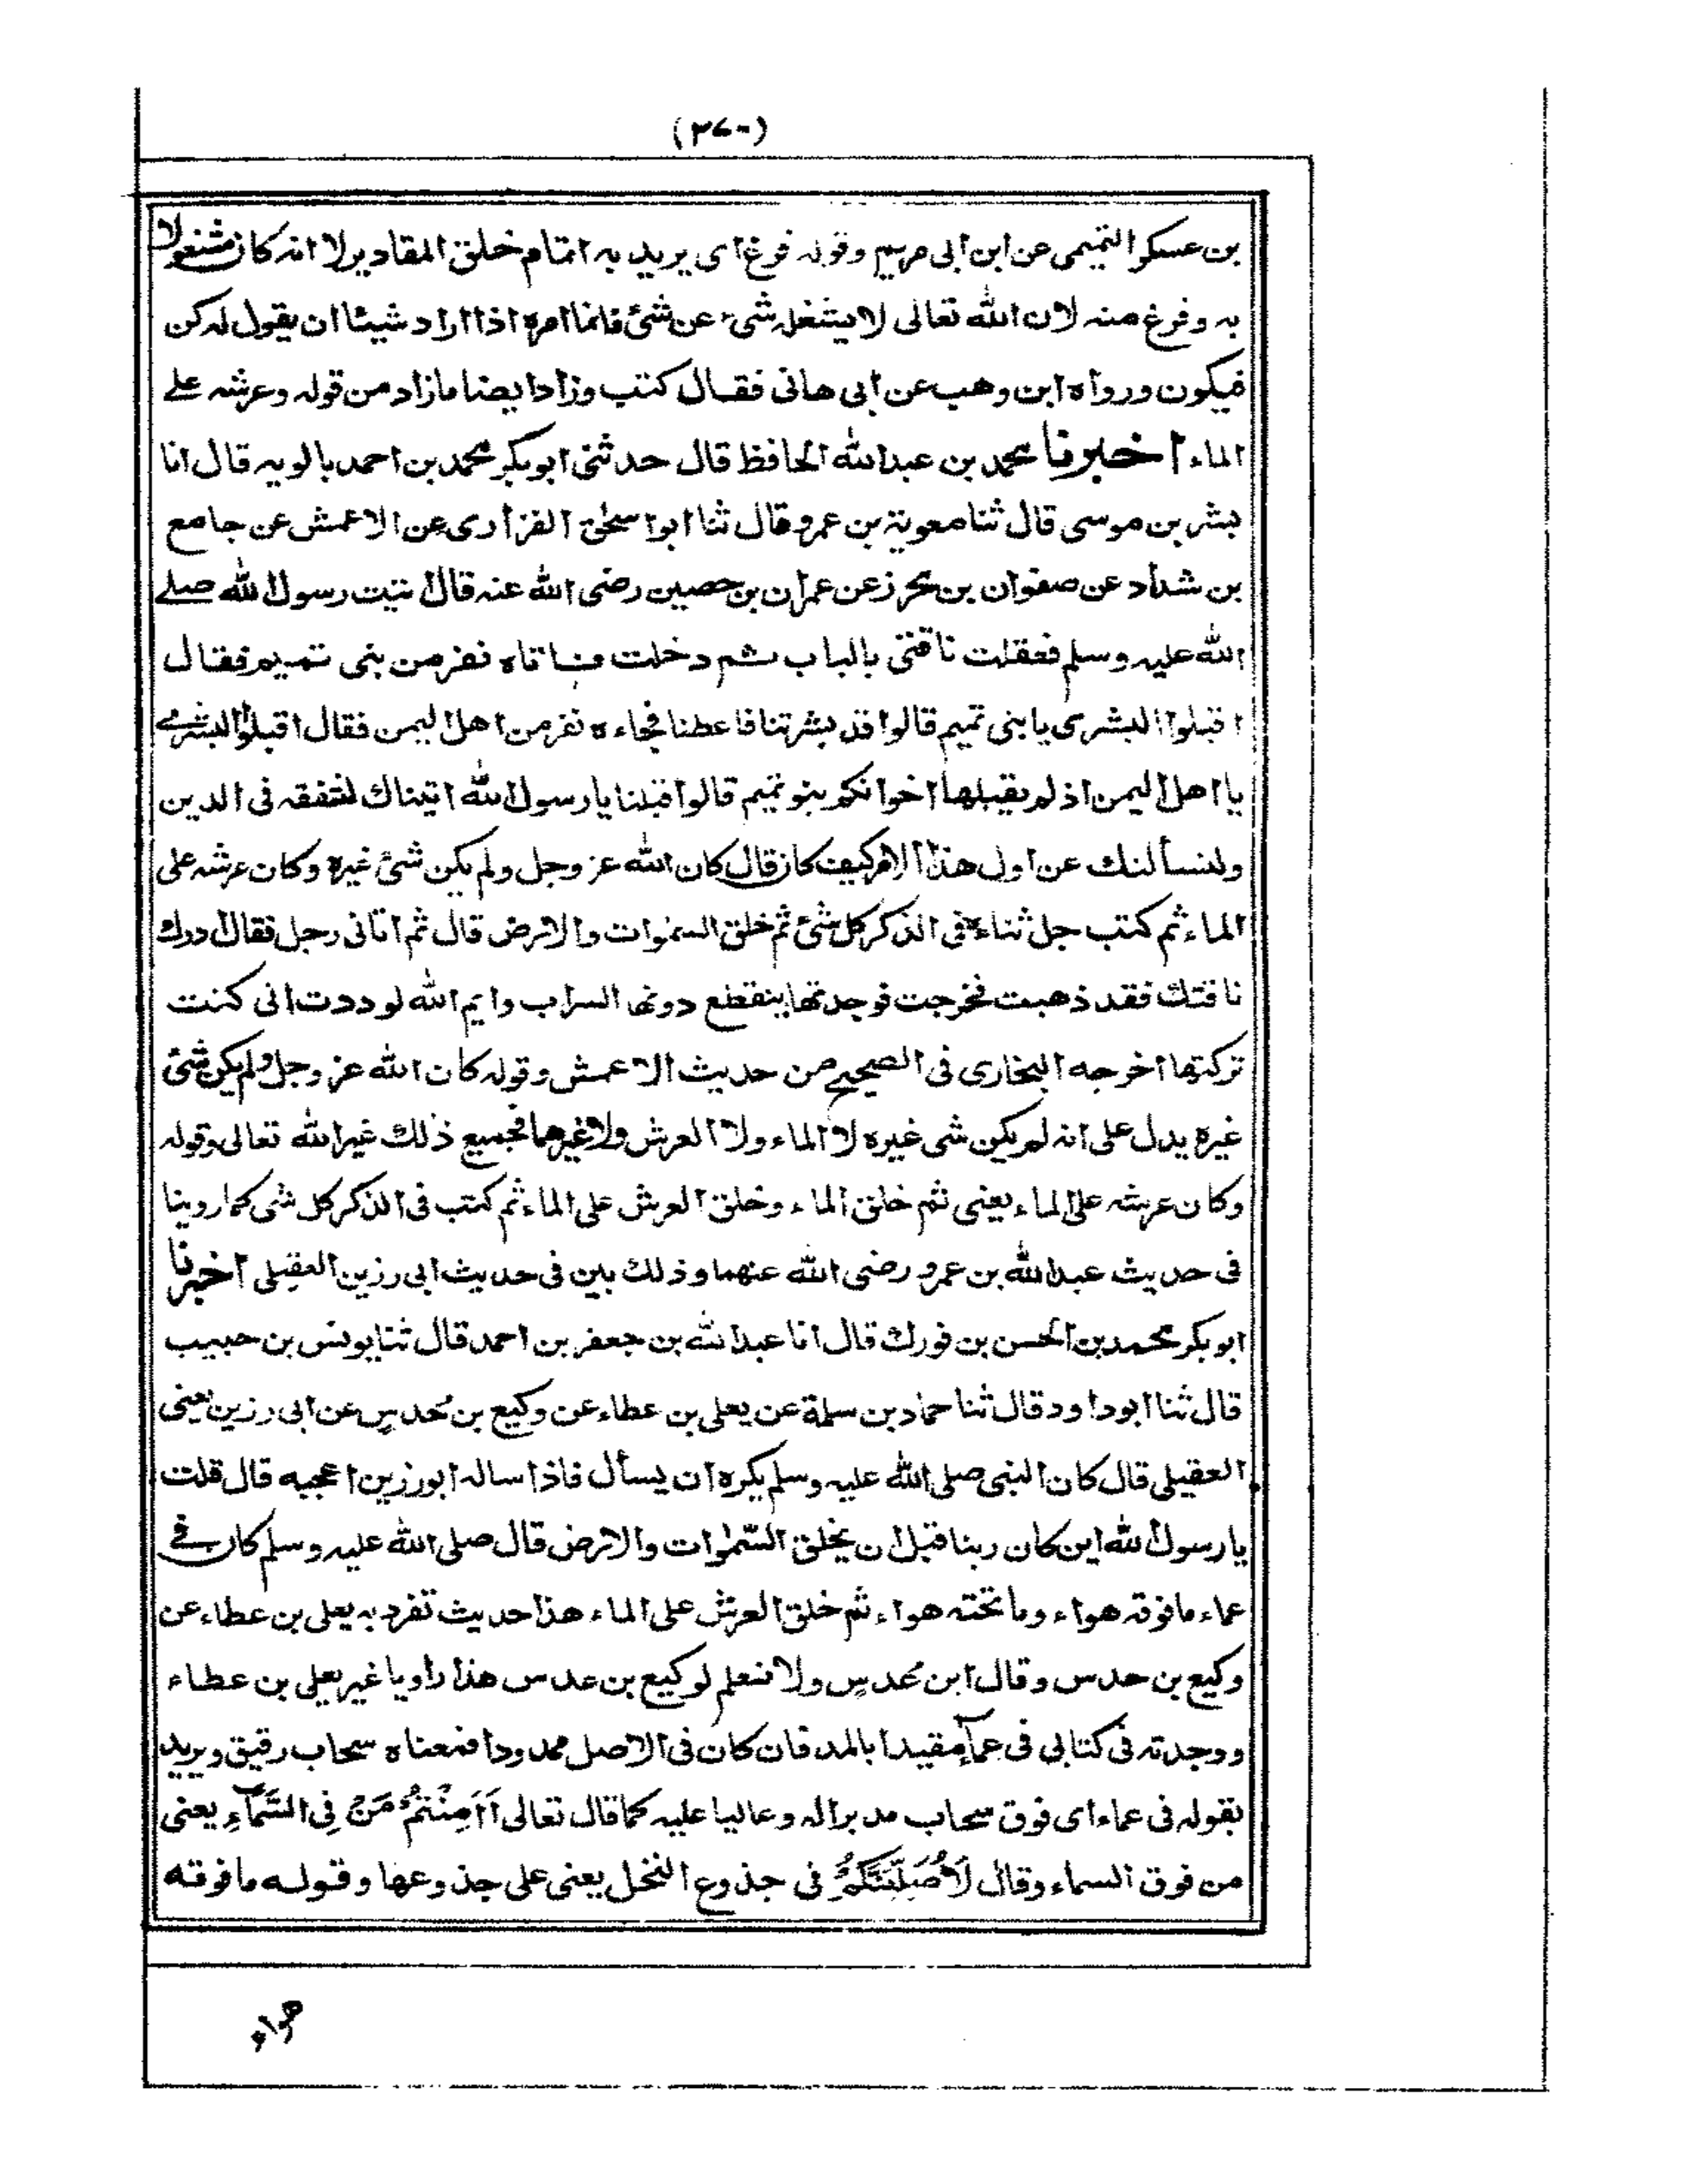 (٢٧٠)
بن عسكر التميمى عن ابن ابى مريم وقوله فرغ اى يريد به اتمام خلق المقادير لا انه كان مشغولا
به وفرغ منه لان الله تعالى لا يشغله شىء عن شئ فانما امره اذا اراد شيئا ان يقول له كن
فيكون ورواه ابن وهب عن ابى هانى فقال كتب وزاد ايضا مازاد من قوله وعرشه على
الماء اخبرنا محمد بن عبد الله الحافظ قال حدثنى ابو بكر محمد بن احمد بالويه قال انا
بشر بن موسى قال ثنا معوية بن عمرو قال ثنا ابو اسحٰق الفزارى عن الاعمش عن جامع
بن شداد عن صفوان بن محرز عن عمران بن حصين رضى الله عنه قال اتيت رسول الله صلے
الله عليه وسلم فعقلت ناقتى بالباب ثم دخلت فاتاه نفر من بنى تميم فقال
اقبلوا البشرى يا بنى تميم قالوا قد بشرتنا فاعطنا فجاءه نفر من اهل اليمن فقال اقبلوا البشرى
يا اهل اليمن اذ لم يقبلها اخوانكم بنو تميم قالوا قبلنا يا رسول الله اتيناك لنتفقه فى الدين
ولنسألنك عن اول هذا الامر كيف كان قال كان الله عز وجل ولم يكن شئ غيره وكان عرشه على
الماء ثم كتب جل ثناءه فى الذكر كل شئ ثم خلق السمٰوات والارض قال ثم اتانى رجل فقال ادرك
ناقتك فقد ذهبت فخرجت فوجدتها ينقطع دونها السراب وايم الله لوددت انى كنت
تركتها اخرجه البخارى فى الصحيح من حديث الاعمش وقوله كان الله عز وجل ولم يكن شئ
غيره يدل على انه لم يكن شى غيره لا الماء ولا العرش ولا غيرهما فجميع ذلك غير الله تعالى وقوله
وكان عرشه على الماء يعنى ثم خلق الماء وخلق العرش على الماء ثم كتب فى الذكر كل شى كما روينا
فى حديث عبد الله بن عمرو رضى الله عنهما وذلك بين فى حديث ابى رزين العقيلى اخبرنا
ابو بكر محمد بن الحسن بن فورك قال انا عبد الله بن جعفر بن احمد قال ثنا يونس بن حبيب
قال ثنا ابو داود قال ثنا حماد بن سلمة عن يعلى بن عطاء عن وكيع بن حُدس عن ابى رزين يعنى
العقيلى قال كان النبى صلى الله عليه وسلم يكره ان يسأل فاذا ساله ابو رزين اعجبه قال قلت
يا رسول الله اين كان ربنا قبل ان يخلق السّمٰوات والارض قال صلى الله عليه وسلم كان فے
عماء ما فوقه هواء وما تحته هواء ثم خلق العرش على الماء هذا حديث تفرد به يعلى بن عطاء عن
وكيع بن حدس وقال ابن عُدسٍ ولا نعلم لوكيع بن عدس هذا راويا غير يعلى بن عطاء
ووجدته فى كتابى فى عمآءٍ مقيدا بالمد فان كان فى الاصل ممدودا فمعناه سحاب رقيق ويريد
بقوله فى عماء اى فوق سحاب مدبرا له وعاليا عليه كما قال تعالى اَاَمِنْتُمْ مَنْ فِى السَّمَآءِ يعنى
من فوق السماء وقال لَاُصَلِّبَنَّكُمْ فى جذوع النخل يعنى على جذوعها وقوله ما فوقه